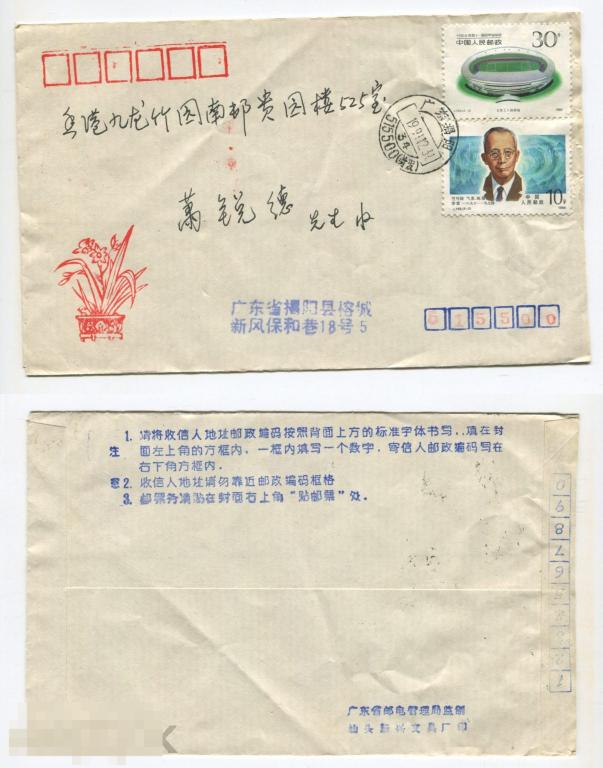 香港九龙竹园南邨贵园楼525室
萧锐德 先生收
30分
中国人民邮政
10分
中国
人民邮政
广东揭阳
515500
广东省揭阳县榕城
新风保和巷18号5
515500
注意
1. 请将收信人地址邮政编码按照背面上方的标准字体书写，填在封
面左上角的方框内，一框内填写一个数字，寄信人邮政编码写在
右下角方框内。
2. 收信人地址请勿靠近邮政编码框格
3. 邮票务请贴在封面右上角“贴邮票”处。
1234567890
广东省邮电管理局监制
汕头新兴文具厂印